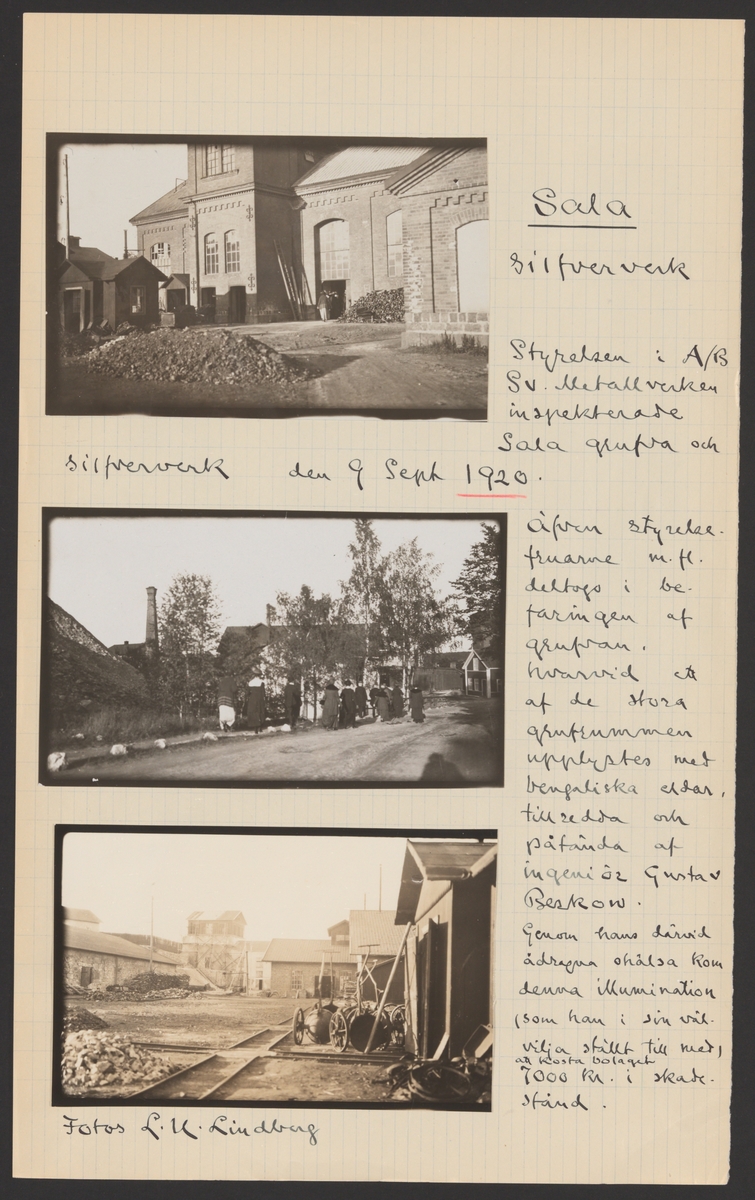 Sala
Silfververk
Styrelsen i A/B
Sv. Metallverken
inspekterade
Sala grufva och
silfververk den 9 Sept 1920.
Äfven styrelse-
fruarne m.fl.
deltogo i be-
faringen af
grufvan,
hvarvid ett
af de stora
grufrummen
upplystes med
bengaliska eldar,
tillredda och
påtända af
ingeniör Gustav
Beskow.
Genom hans därvid
ådragna ohälsa kom
denna illumination
(som han i sin väl-
vilja ställt till med)
att kosta bolaget
7000 kr. i skade-
stånd.
Fotos L. U. Lindberg